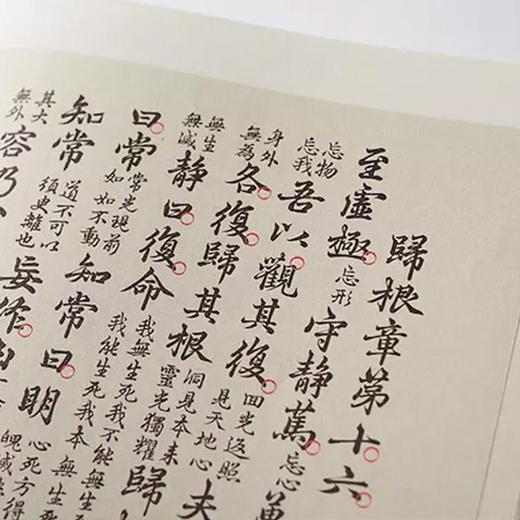 歸根章第十六
至虛極忘形守靜篤忘心萬
忘物
忘我
吾以觀其復
回光返照
見天地心
夫
身外
無為
各復歸其根
洞見本來
靈光獨耀
歸
無生
無滅
靜曰復命
我無生死我不能生死
我能生死我本無生死
曰常
常光現前
如如不動
知常曰明
心死方得
魄滅
知常
道不可以
須臾離也
妄作凶
其大
無外
容乃